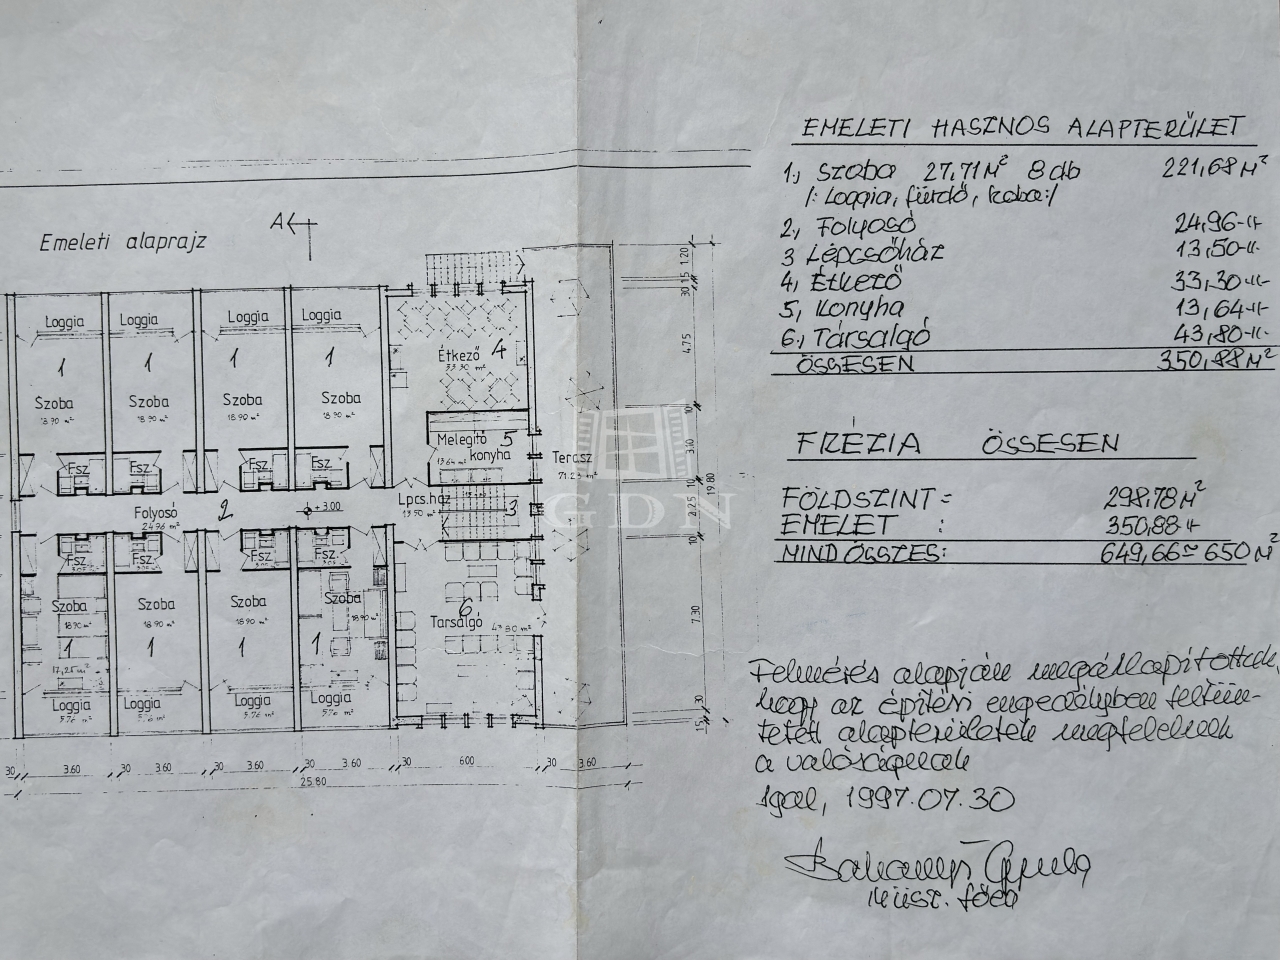 EMELETI HASZNOS ALAPTERÜLET
1., Szoba 27,71 M² 8 db 221,68 M²
/: Loggia, fürdő, szoba:/
2., Folyosó 24,96 -"-
3 Lépcsőház 13,50 -"-
4., Étkező 33,30 -"-
5, Konyha 13,64 -"-
6., Társalgó 43,80 -"-
ÖSSESEN 350,88 M²
FRÉZIA ÖSSESEN
FÖLDSZINT = 298,78 M²
EMELET : 350,88 -"-
MINDÖSSZES: 649,66 ≃ 650 M²
Felmérés alapján megállapítottuk,
hogy az építési engedélyben feltün-
tetett alapterületek megfelelnek
a valóságnak
Igal, 1997.07.30
Műsz. főea
Emeleti alaprajz
A
Loggia Loggia Loggia Loggia
1 1 1 1
Szoba Szoba Szoba Szoba
18.90 m² 18.90 m² 18.90 m² 18.90 m²
Étkező 4
33.30 m²
Melegítő 5
konyha
13.64 m²
Terasz
71.23 m²
Fsz. Fsz. Fsz. Fsz.
Folyosó 2 +3.00
24.96 m²
Lpcs.ház 3
13.50 m²
Fsz. Fsz. Fsz. Fsz.
Szoba Szoba Szoba Szoba
18.90 m² 18.90 m² 18.90 m² 18.90 m²
1 1 1 1
17,25 m²
6
Tarsalgó 43.80 m²
Loggia Loggia Loggia Loggia
5.76 m² 5.76 m² 5.76 m² 5.76 m²
30 3.60 30 3.60 30 3.60 30 3.60 30 6.00 30 3.60
25.80
1.20
30 15
4.75
10
3.10
10
2.25
10
7.30
30
15
19.80
GDN